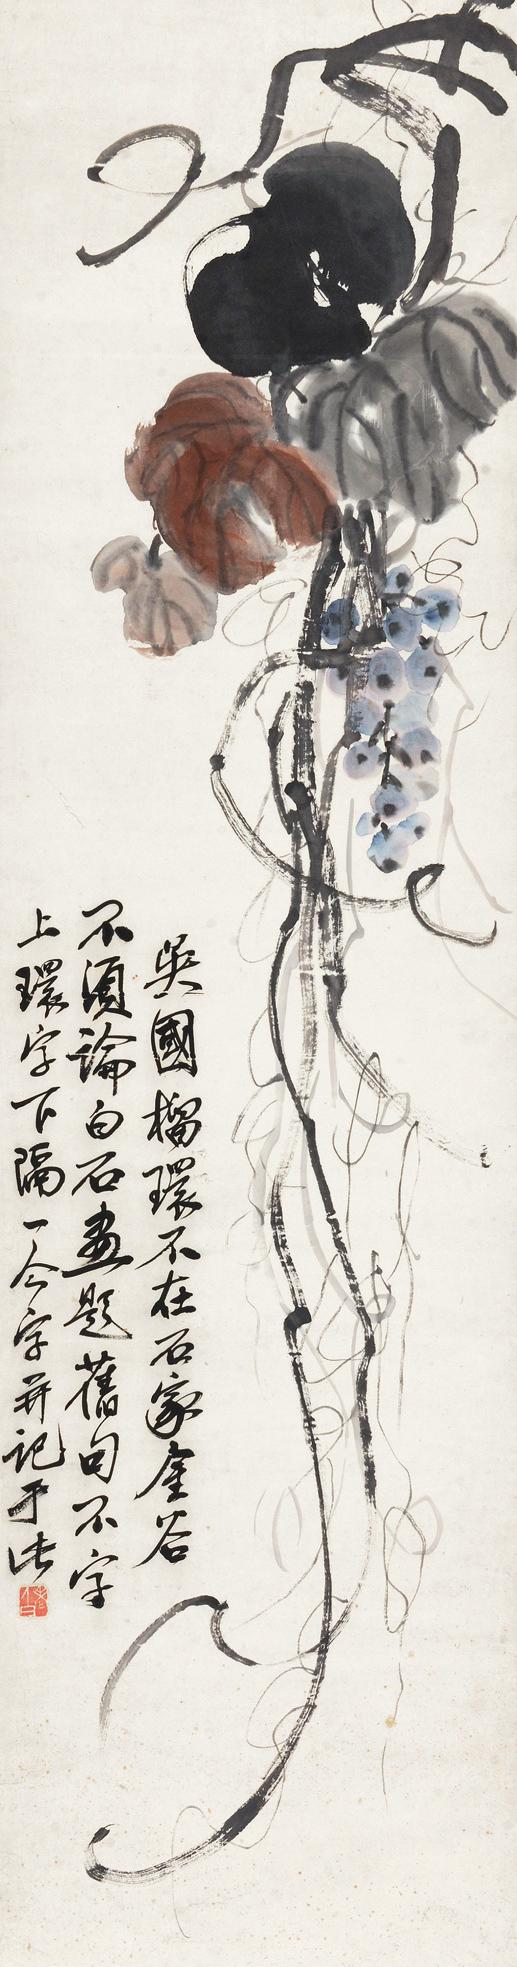 吳國榴環不在石家金谷
不須論白石畫題舊句不字
上環字下隔一今字并記于此